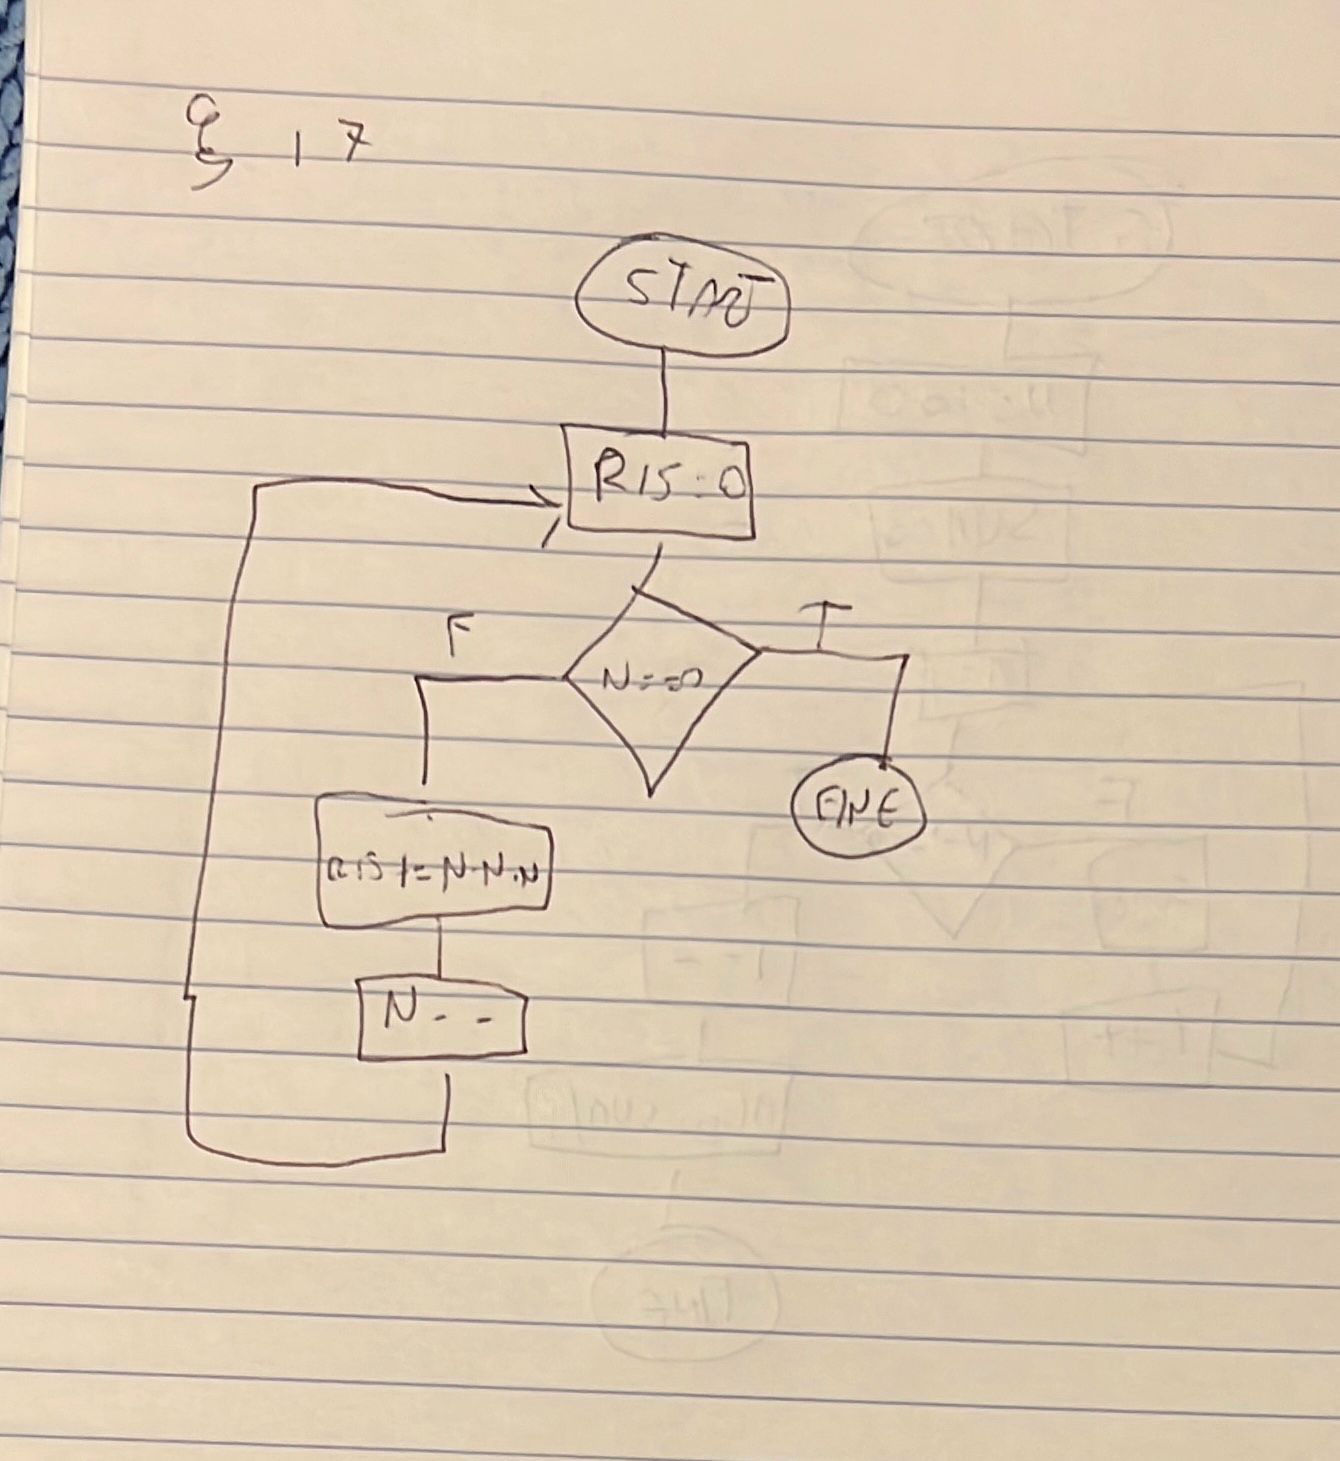 17
START
RIS=0
F
T
N==0
FINE
RIS+=N·N·N
N--